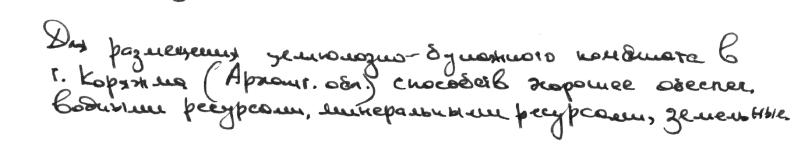 Для размещения целлюлозно-бумажного комбината в
г. Коряжма (Арханг. обл.) способств хорошее обеспеч.
водными ресурсами, минеральными ресурсами, земельные